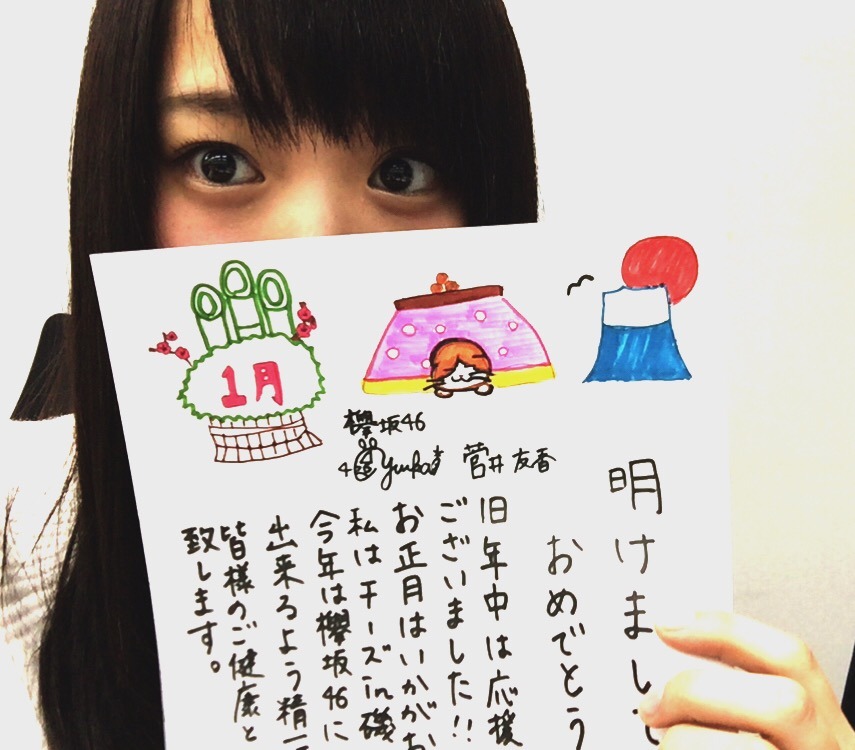 1月
欅坂46
Yuuka
菅井友香
明けまして
おめでとう
旧年中は応援
ございました!!
お正月はいかがお
私はチーズin磯
今年は欅坂46に
出来るよう精一
皆様のご健康と
致します。